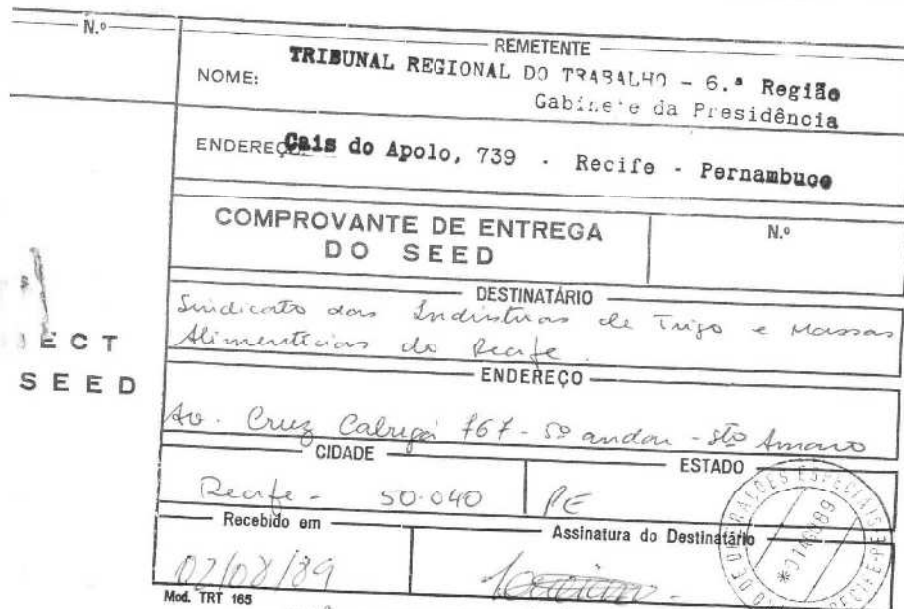 N.º
REMETENTE
NOME: TRIBUNAL REGIONAL DO TRABALHO - 6.ª Região
Gabinete da Presidência
ENDEREÇO: Cais do Apolo, 739 - Recife - Pernambuco
COMPROVANTE DE ENTREGA
DO SEED
N.º
DESTINATÁRIO
Sindicato das Indústrias de Trigo e Massas
Alimentícias do Recife.
ECT
SEED
ENDEREÇO
Av. Cruz Cabugá 767 - 5º andar - Sto Amaro
CIDADE
ESTADO
Recife - 50.040 PE
Recebido em
Assinatura do Destinatário
02/08/89
Mod. TRT 165